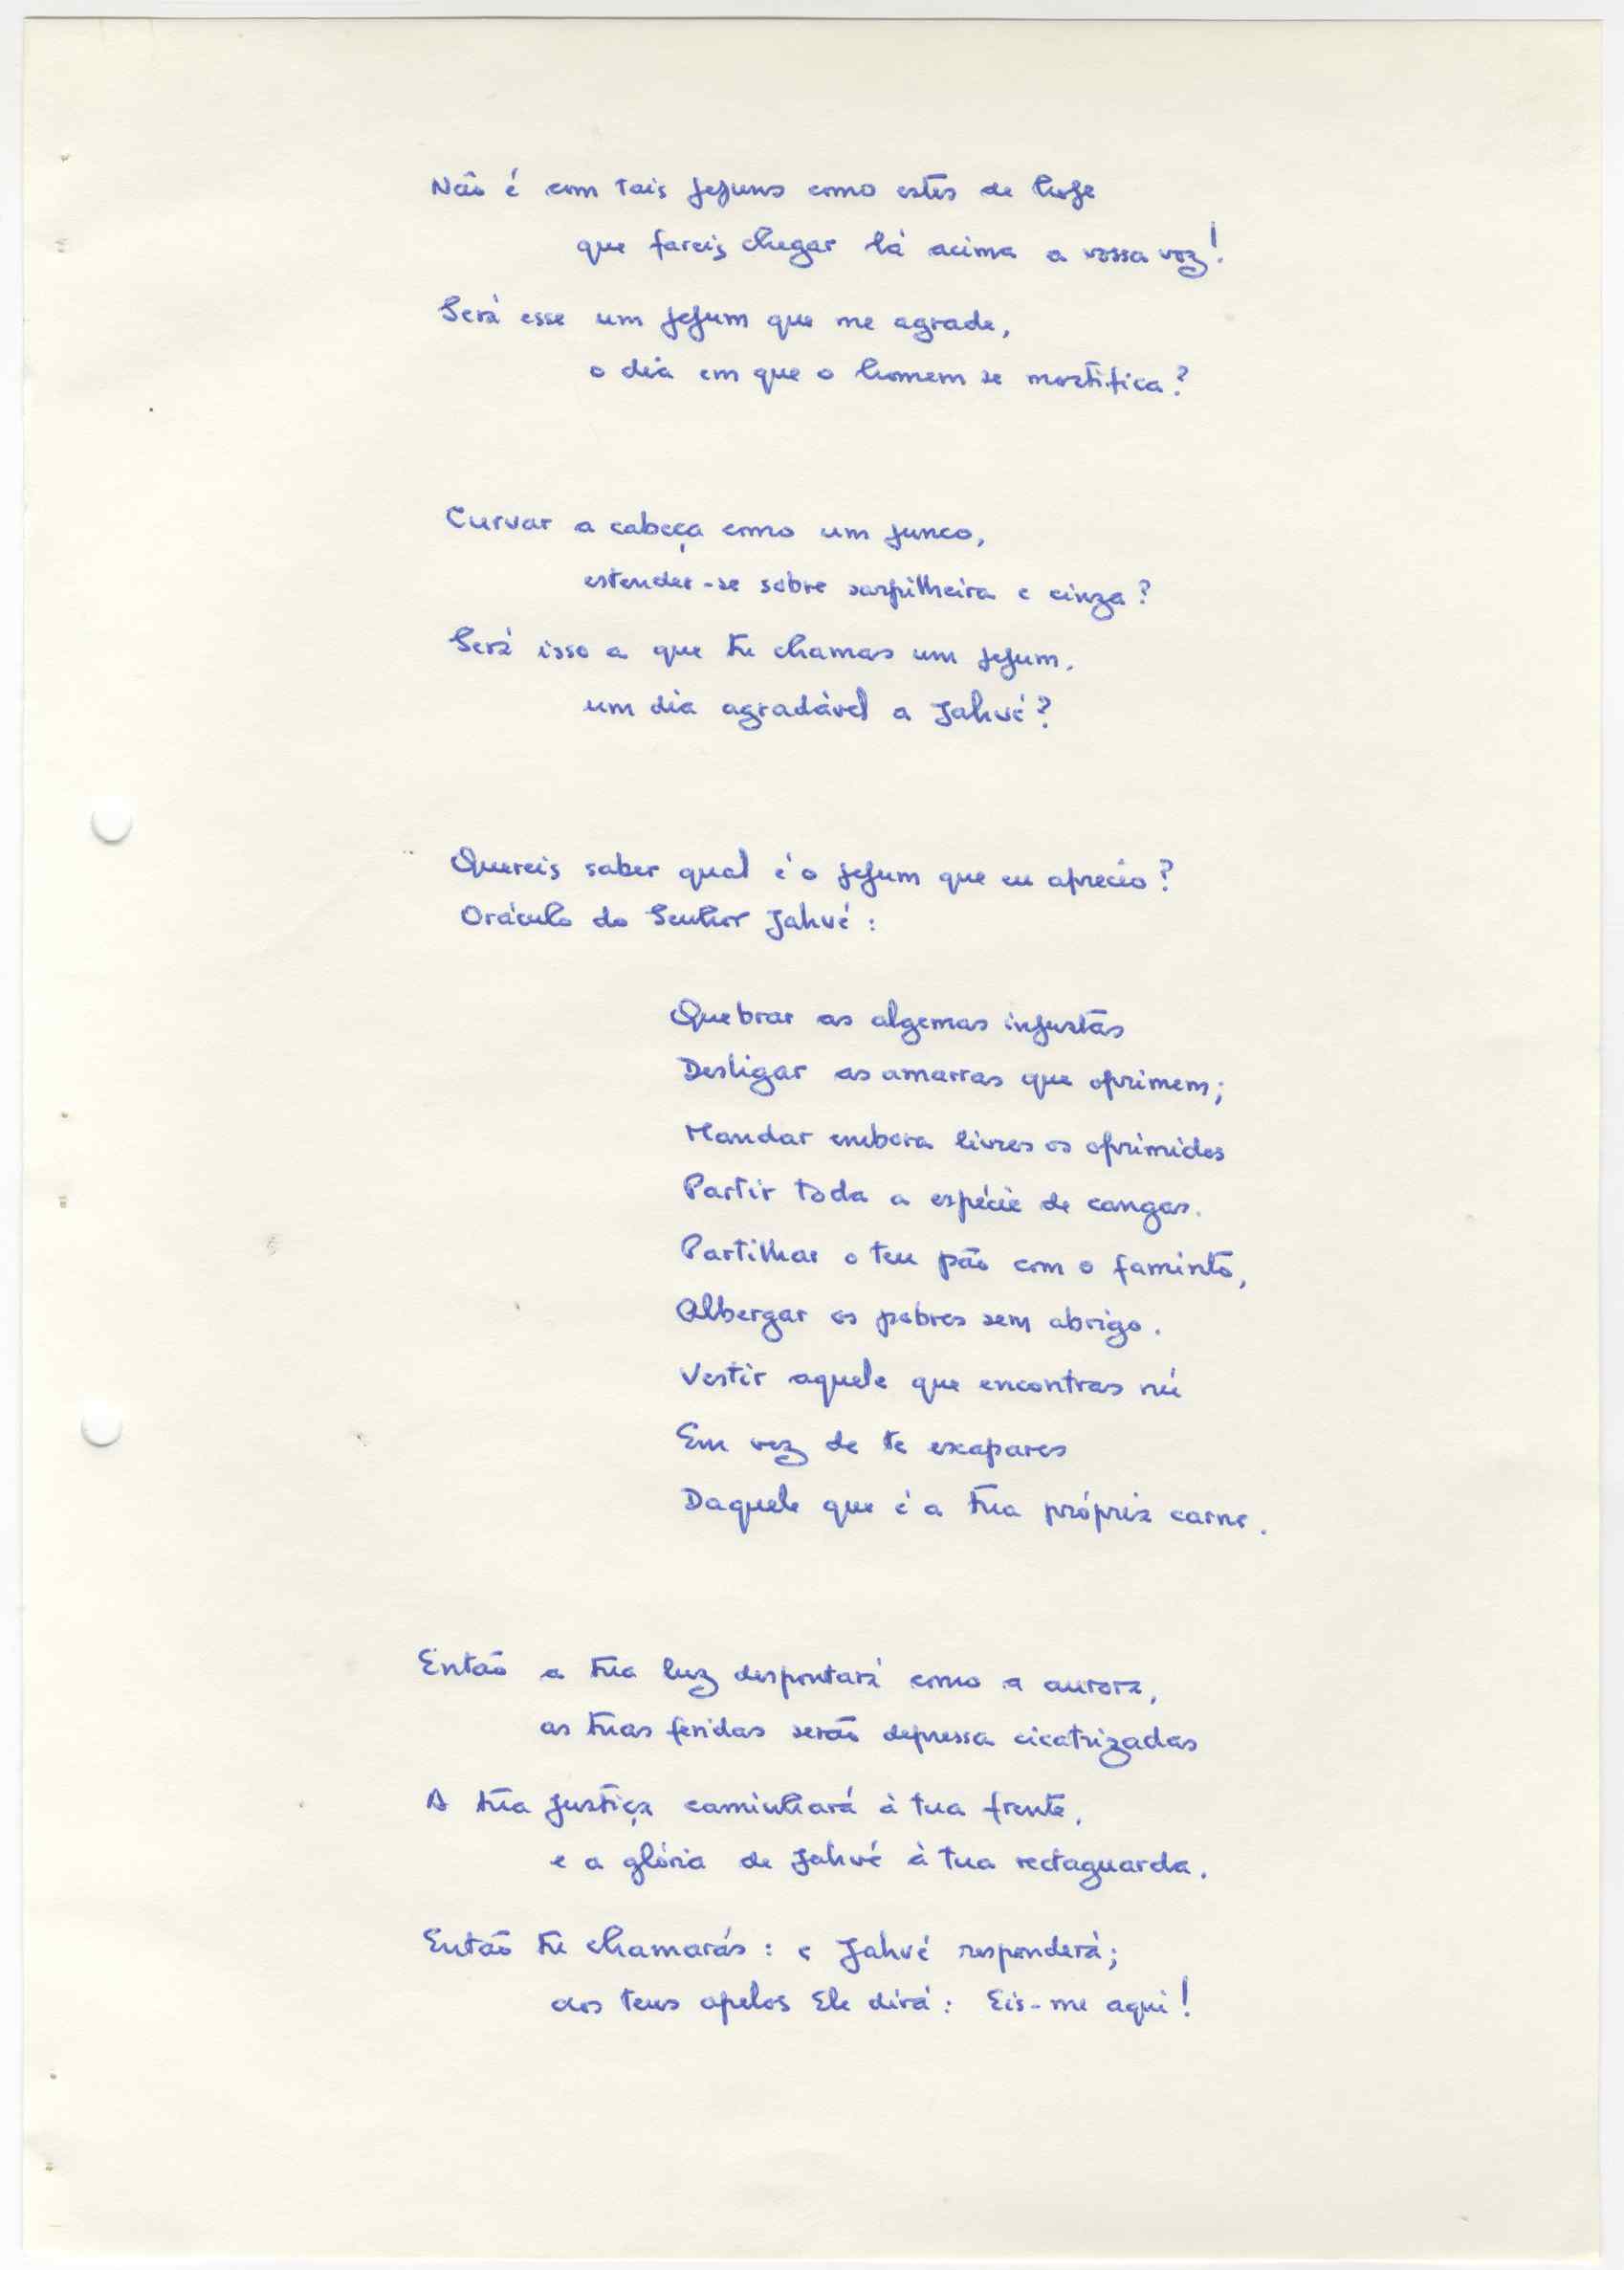 Não é com tais jejuns como estes de hoje
que fareis chegar lá acima a vossa voz!
Será esse um jejum que me agrade,
o dia em que o homem se mortifica?
Curvar a cabeça como um junco,
estender-se sobre sarpilheira e cinza?
Será isso a que tu chamas um jejum,
um dia agradável a Jahvé?
Quereis saber qual é o jejum que eu aprecio?
Oráculo do Senhor Jahvé:
Quebrar as algemas injustas
Desligar as amarras que oprimem;
Mandar embora livres os oprimidos
Partir toda a espécie de cangas.
Partilhar o teu pão com o faminto,
Albergar os pobres sem abrigo.
Vestir aquele que encontras nú
Em vez de te escapares
Daquele que é a tua própria carne.
Então a tua luz despontará como a aurora,
as tuas feridas serão depressa cicatrizadas
A tua justiça caminhará à tua frente,
e a glória de Jahvé à tua rectaguarda.
Então tu chamarás: e Jahvé responderá;
aos teus apelos Ele dirá: Eis-me aqui!